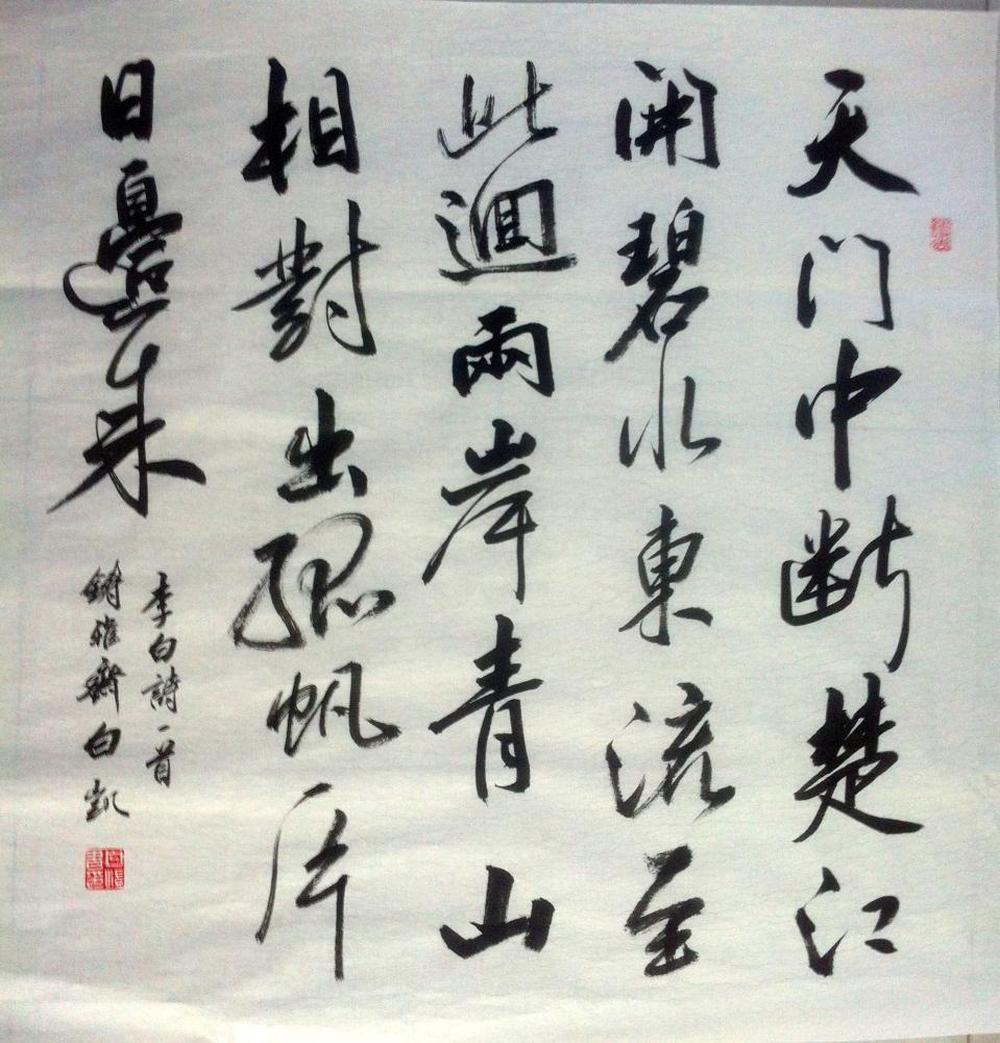 天门中断楚江
開碧水東流至
此迴兩岸青山
相對出孤帆片
日邊来
李白詩一首
鑄雅齋白凱